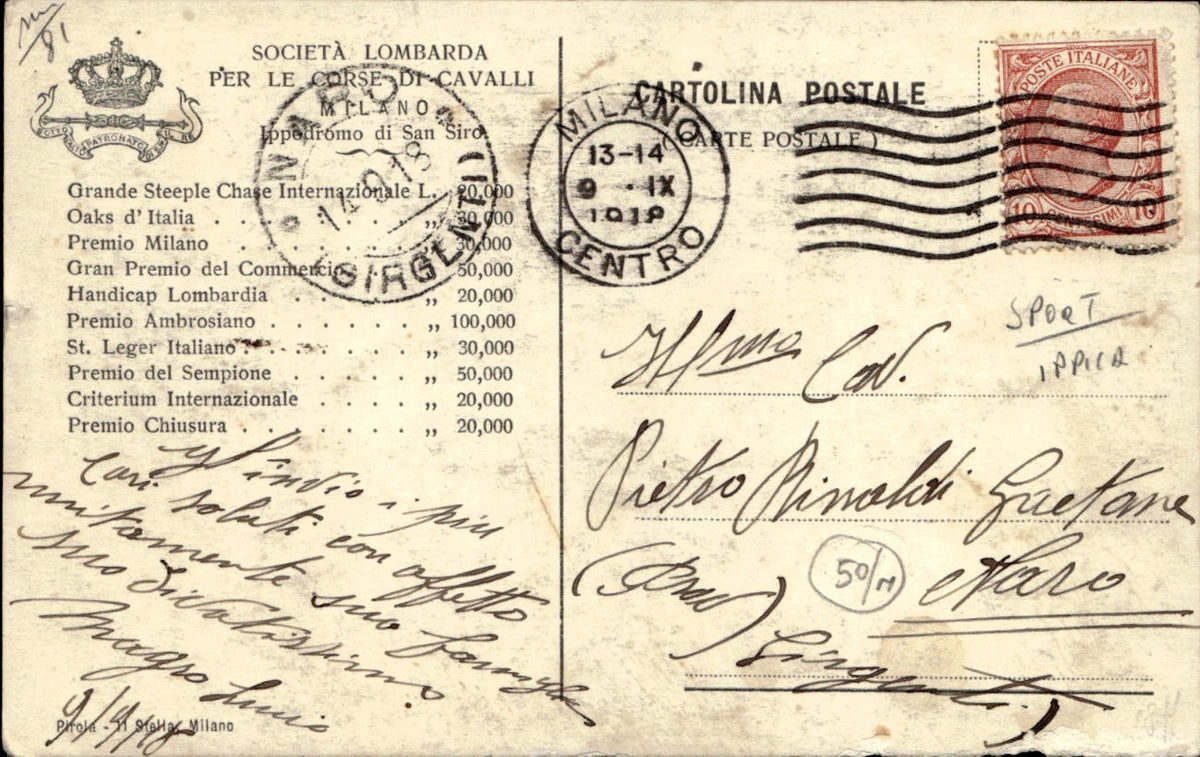 SOCIETÀ LOMBARDA
PER LE CORSE DI CAVALLI
MILANO
Ippodromo di San Siro
PATRONATO
Grande Steeple Chase Internazionale L. 20,000
Oaks d' Italia . . . . . . . ,, 30,000
Premio Milano . . . . . . ,, 30,000
Gran Premio del Commercio ,, 50,000
Handicap Lombardia . . . . . ,, 20,000
Premio Ambrosiano . . . . . . ,, 100,000
St. Leger Italiano . . . . . . ,, 30,000
Premio del Sempione . . . . . ,, 50,000
Criterium Internazionale . . . . ,, 20,000
Premio Chiusura . . . . . . . ,, 20,000
NARO
GIRGENTI
MILANO
13-14
9 . IX
1918
CENTRO
CARTOLINA POSTALE
(CARTE POSTALE)
POSTE ITALIANE
10 CENTESIMI 10
SPORT
IPPICA
Illmo Cav.
Pietro Rinaldi Gaetano
50/
Naro
Girgenti)
invio i più
Cari saluti con affetto
unitamente sua famiglia
suo
Magro
9/9/18
Pirola - 11 Stella, Milano